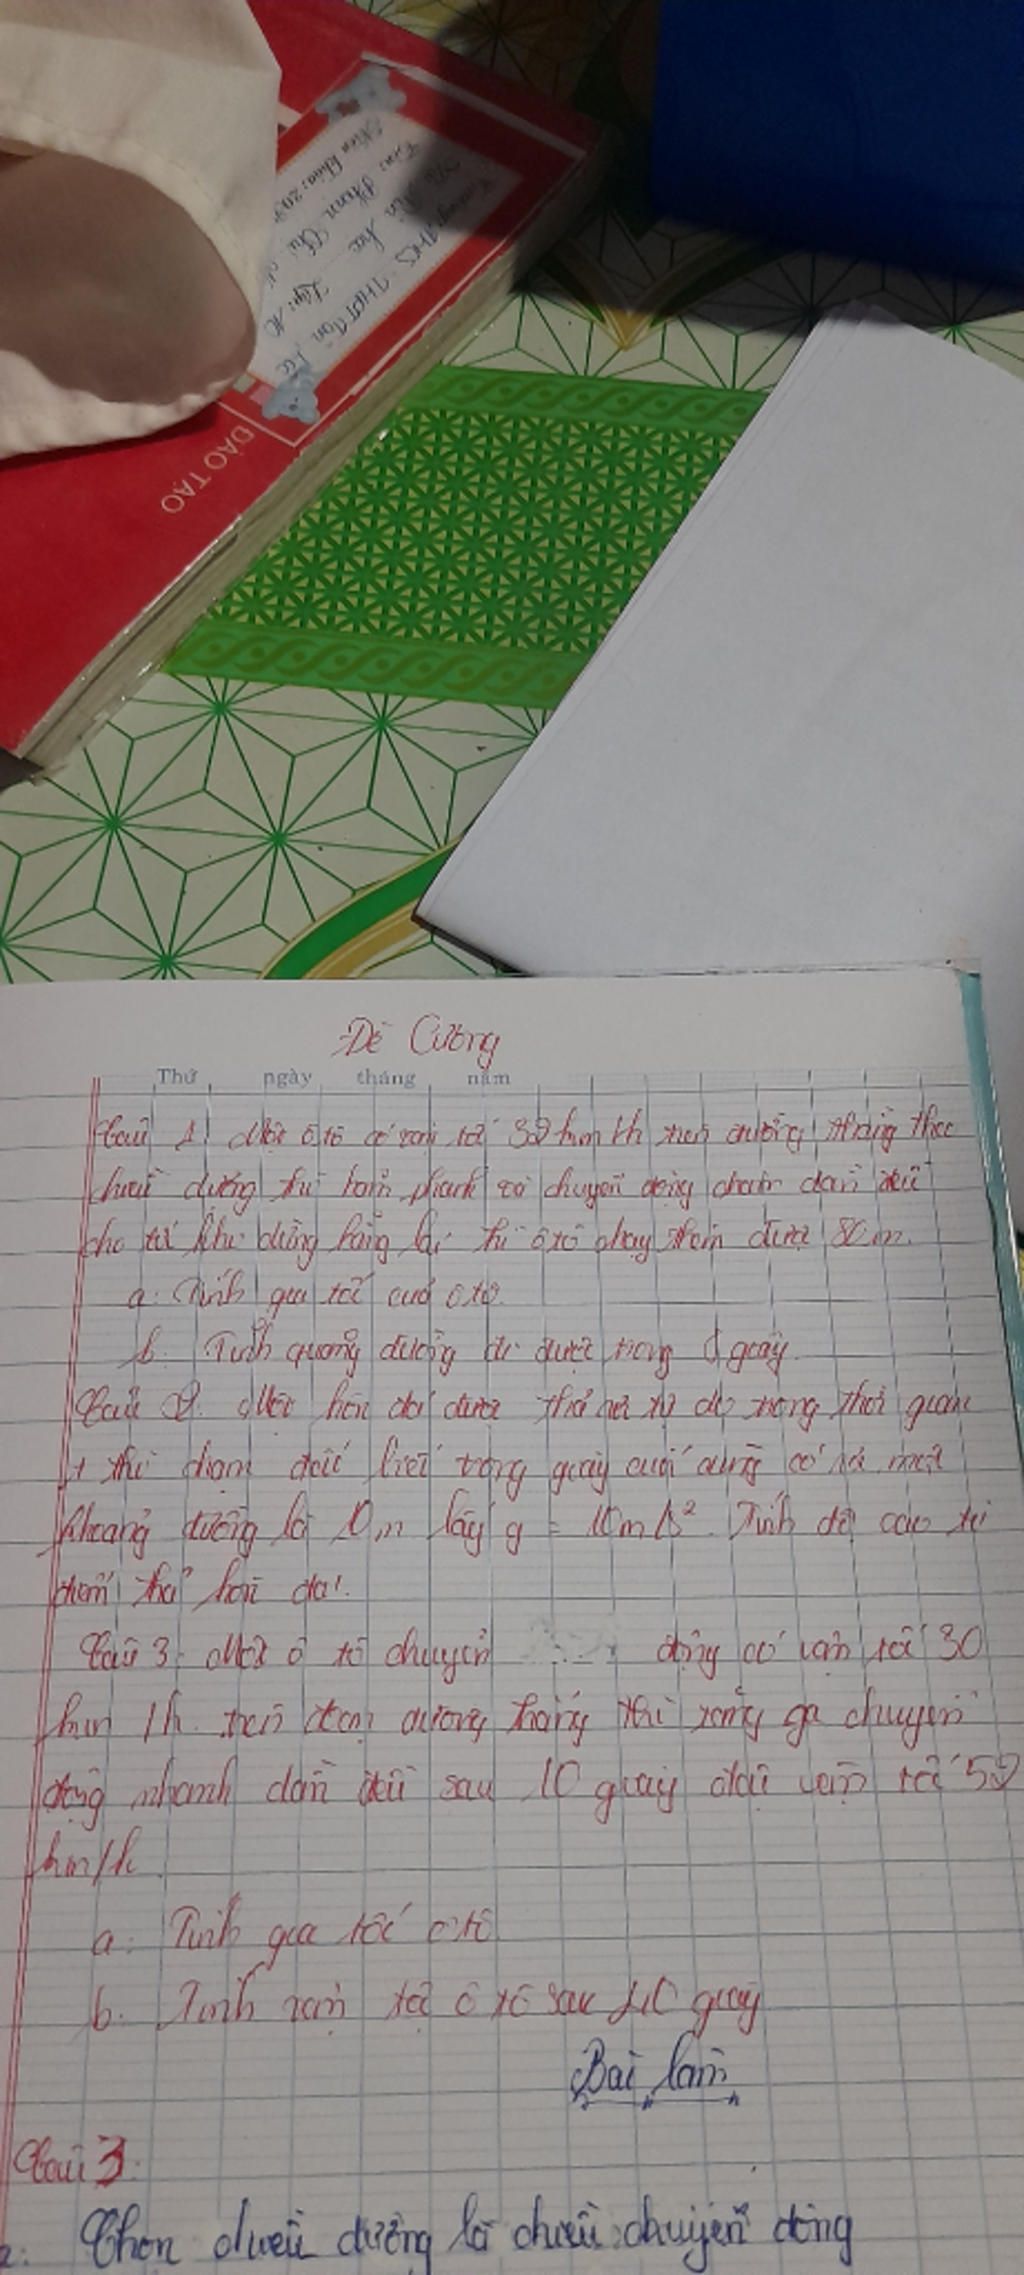 ĐÀO TẠO
Đề Cương
Thứ ngày tháng năm
Câu 1: Một ô tô có vận tốc km/h trên đường thẳng theo
chiều dương thì hãm phanh và chuyển động chậm dần đều
cho tới khi dừng hẳng lại thì ô tô chạy thêm được 80m.
a. Tính gia tốc của ô tô.
b. Tính quãng đường đi được trong giây
Câu 2. Một hòn đá được thả rơi tự do trong thời gian
t thì chạm đất biết trong giây cuối cùng có rơi một
khoảng đường là m lấy g = 10m/s². Tính độ cao từ
điểm thả hòn đá.
Câu 3. Một ô tô chuyển động có vận tốc 30
km/h trên đoạn đường thẳng thì xuống ga chuyển
động nhanh dần đều sau 10 giây đạt vận tốc
km/h
a. Tính gia tốc ô tô
b. Tính vận tốc ô tô sau giây
Bài làm
Câu 3:
Chọn chiều dương là chiều chuyển động